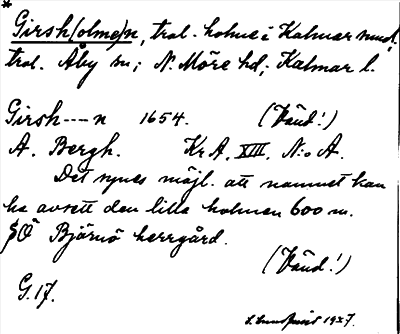 *
Girsh(olme)n, trol. holme i Kalmar sund,
trol. Åby sn; N. Möre hd; Kalmar l.
Girsh---n 1654. (Vänd!)
A. Bergh. Kr A. XIII. N:o A.
Det synes möjl. att namnet kan
ha avsett den lilla holmen 600 m.
SÖ Björnö herrgård.
(Vänd!)
G. 17.
1927.